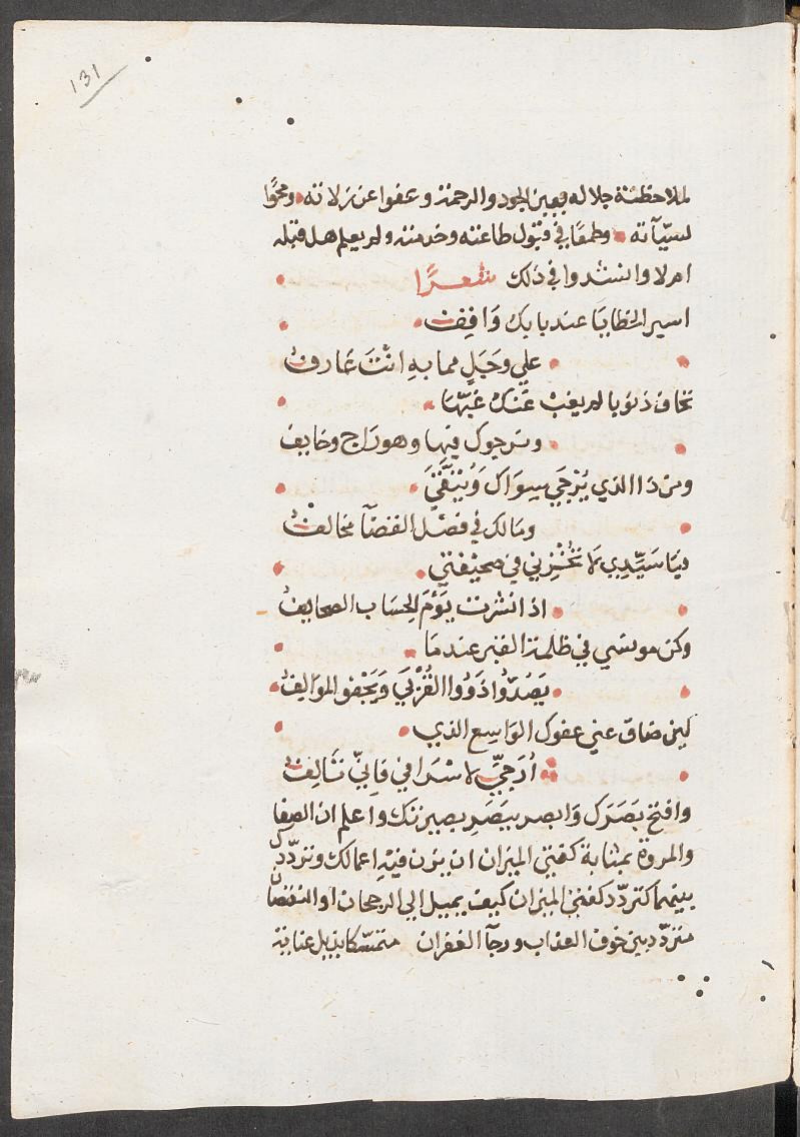 131
لملاحظتة جلاله بعين الجود والرحمة وعفوا عن زلاته ومحوًا
لسيّآته وطمعًا في قبول طاعته وخدمته ولم يعلم هل قبله
امرلا وانشدوا في ذلك شعرًا
اسير الخطايا عند بابك وَاقفٌ
علي وجَلٍ مما بهِ انتَ عَارفُ
يخاف ذنوبا لم يغبْ عَنكَ غَيبُهَا
ويرجوك فيها وهو رَاج وخايف
ومن ذا الذي يُرْجَي سِوَاك وَيُتقَّيَ
ومَالك في فصْل القضآ مخالفُ
فيَا سَيِّدِي لَا تُخْزِني في صحيْفتي
اذا نشرت يَوْمَ الحِسَاب الصحايفُ
وكن مونسي في ظلمة القبر عندمَا
يَصُدّوا ذَوُوا القُرْبَي وَيَجْفو الموَالفُ
لين ضاق عني عفوك الوَاسِع الذي
اُرَجِيِّ لاسْرَافي فَاِنيِّ تَالِفُ
وافتح بَصَرَك وَابصر ببَصَرِ بصيرتك واعلم ان الصفا
والمروة بمثابة كفتي الميزان ان يزن فيْهِ اعمالك وتردّدك
بينهما كتردّد كفتي الميزان كيف يميل الي الرجحان او النقصان
متردّد بين خوف العذاب ورجآ الغفران متمسّكا بذيل عنايته